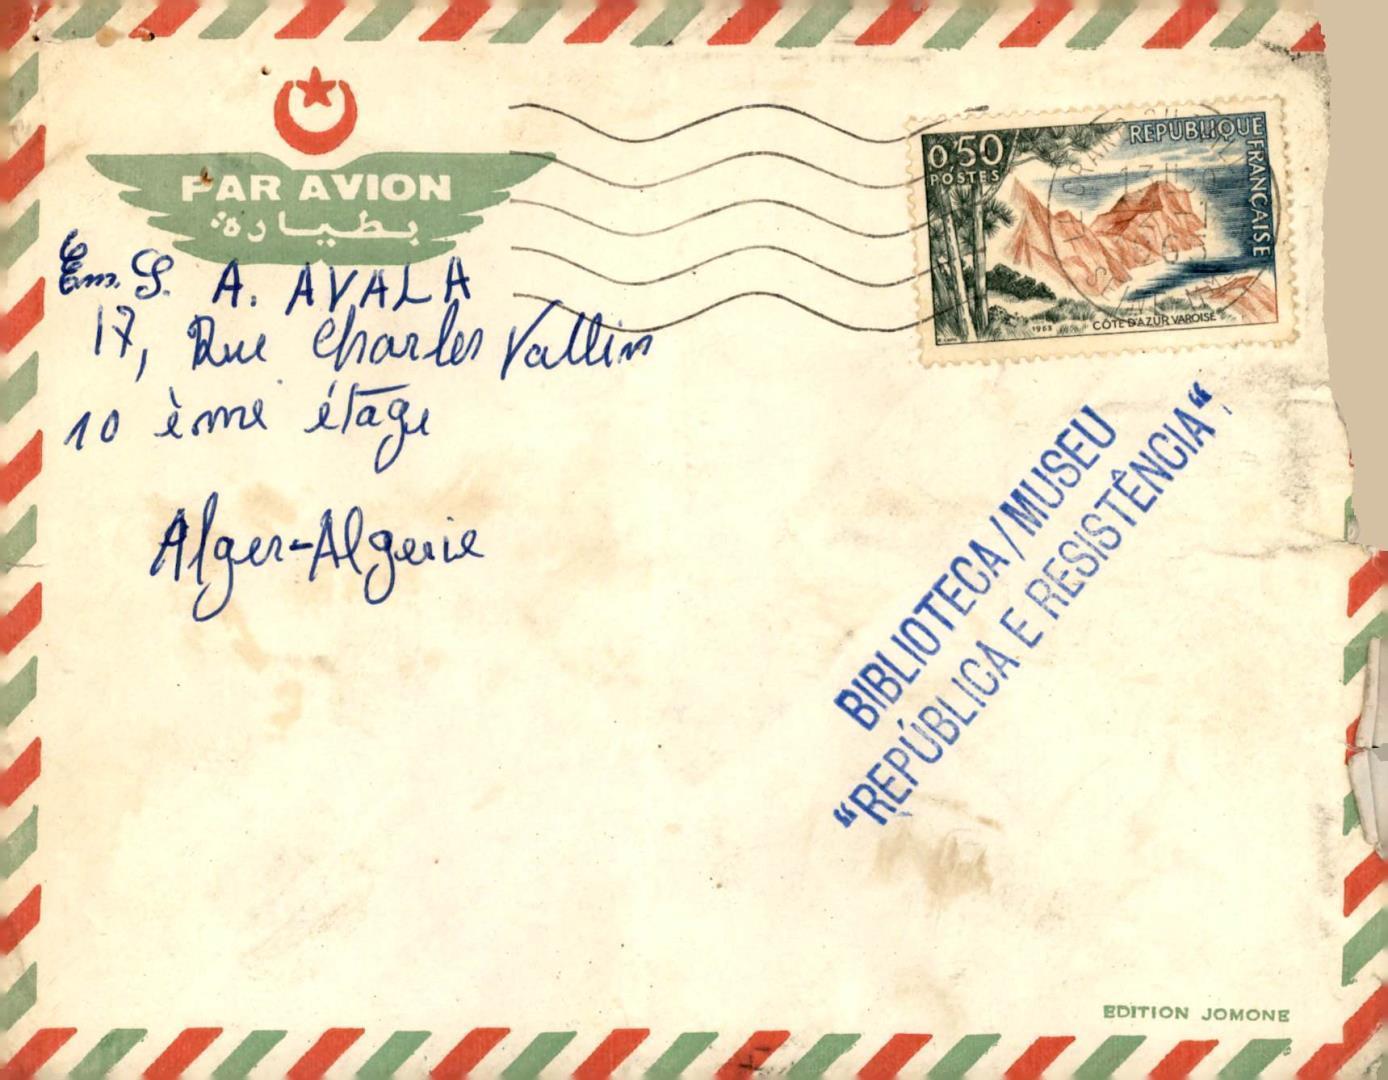 PAR AVION
بطيارة
Em. S. A. AVALA
17, Rue Charles Vallin
10 ème étage
Alger-Algerie
0,50
POSTES
REPUBLIQUE FRANCAISE
1963
COTE D'AZUR VAROISE
BIBLIOTECA / MUSEU
“REPÚBLICA E RESISTÊNCIA“
EDITION JOMONE